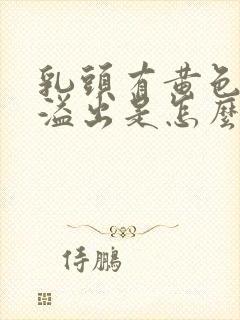 乳頭有黃色
溢出是怎麼
侍鵬